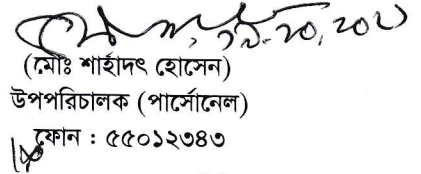 (মোঃ শাহাদৎ হোসেন)
উপপরিচালক (পার্সোনেল)
ফোন : ৫৫০১২৩৪৩